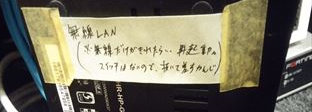 無線LAN
(※無線だけがきれたら、再起動の
スイッチはないので、抜いて差すかんじ)
HP-G